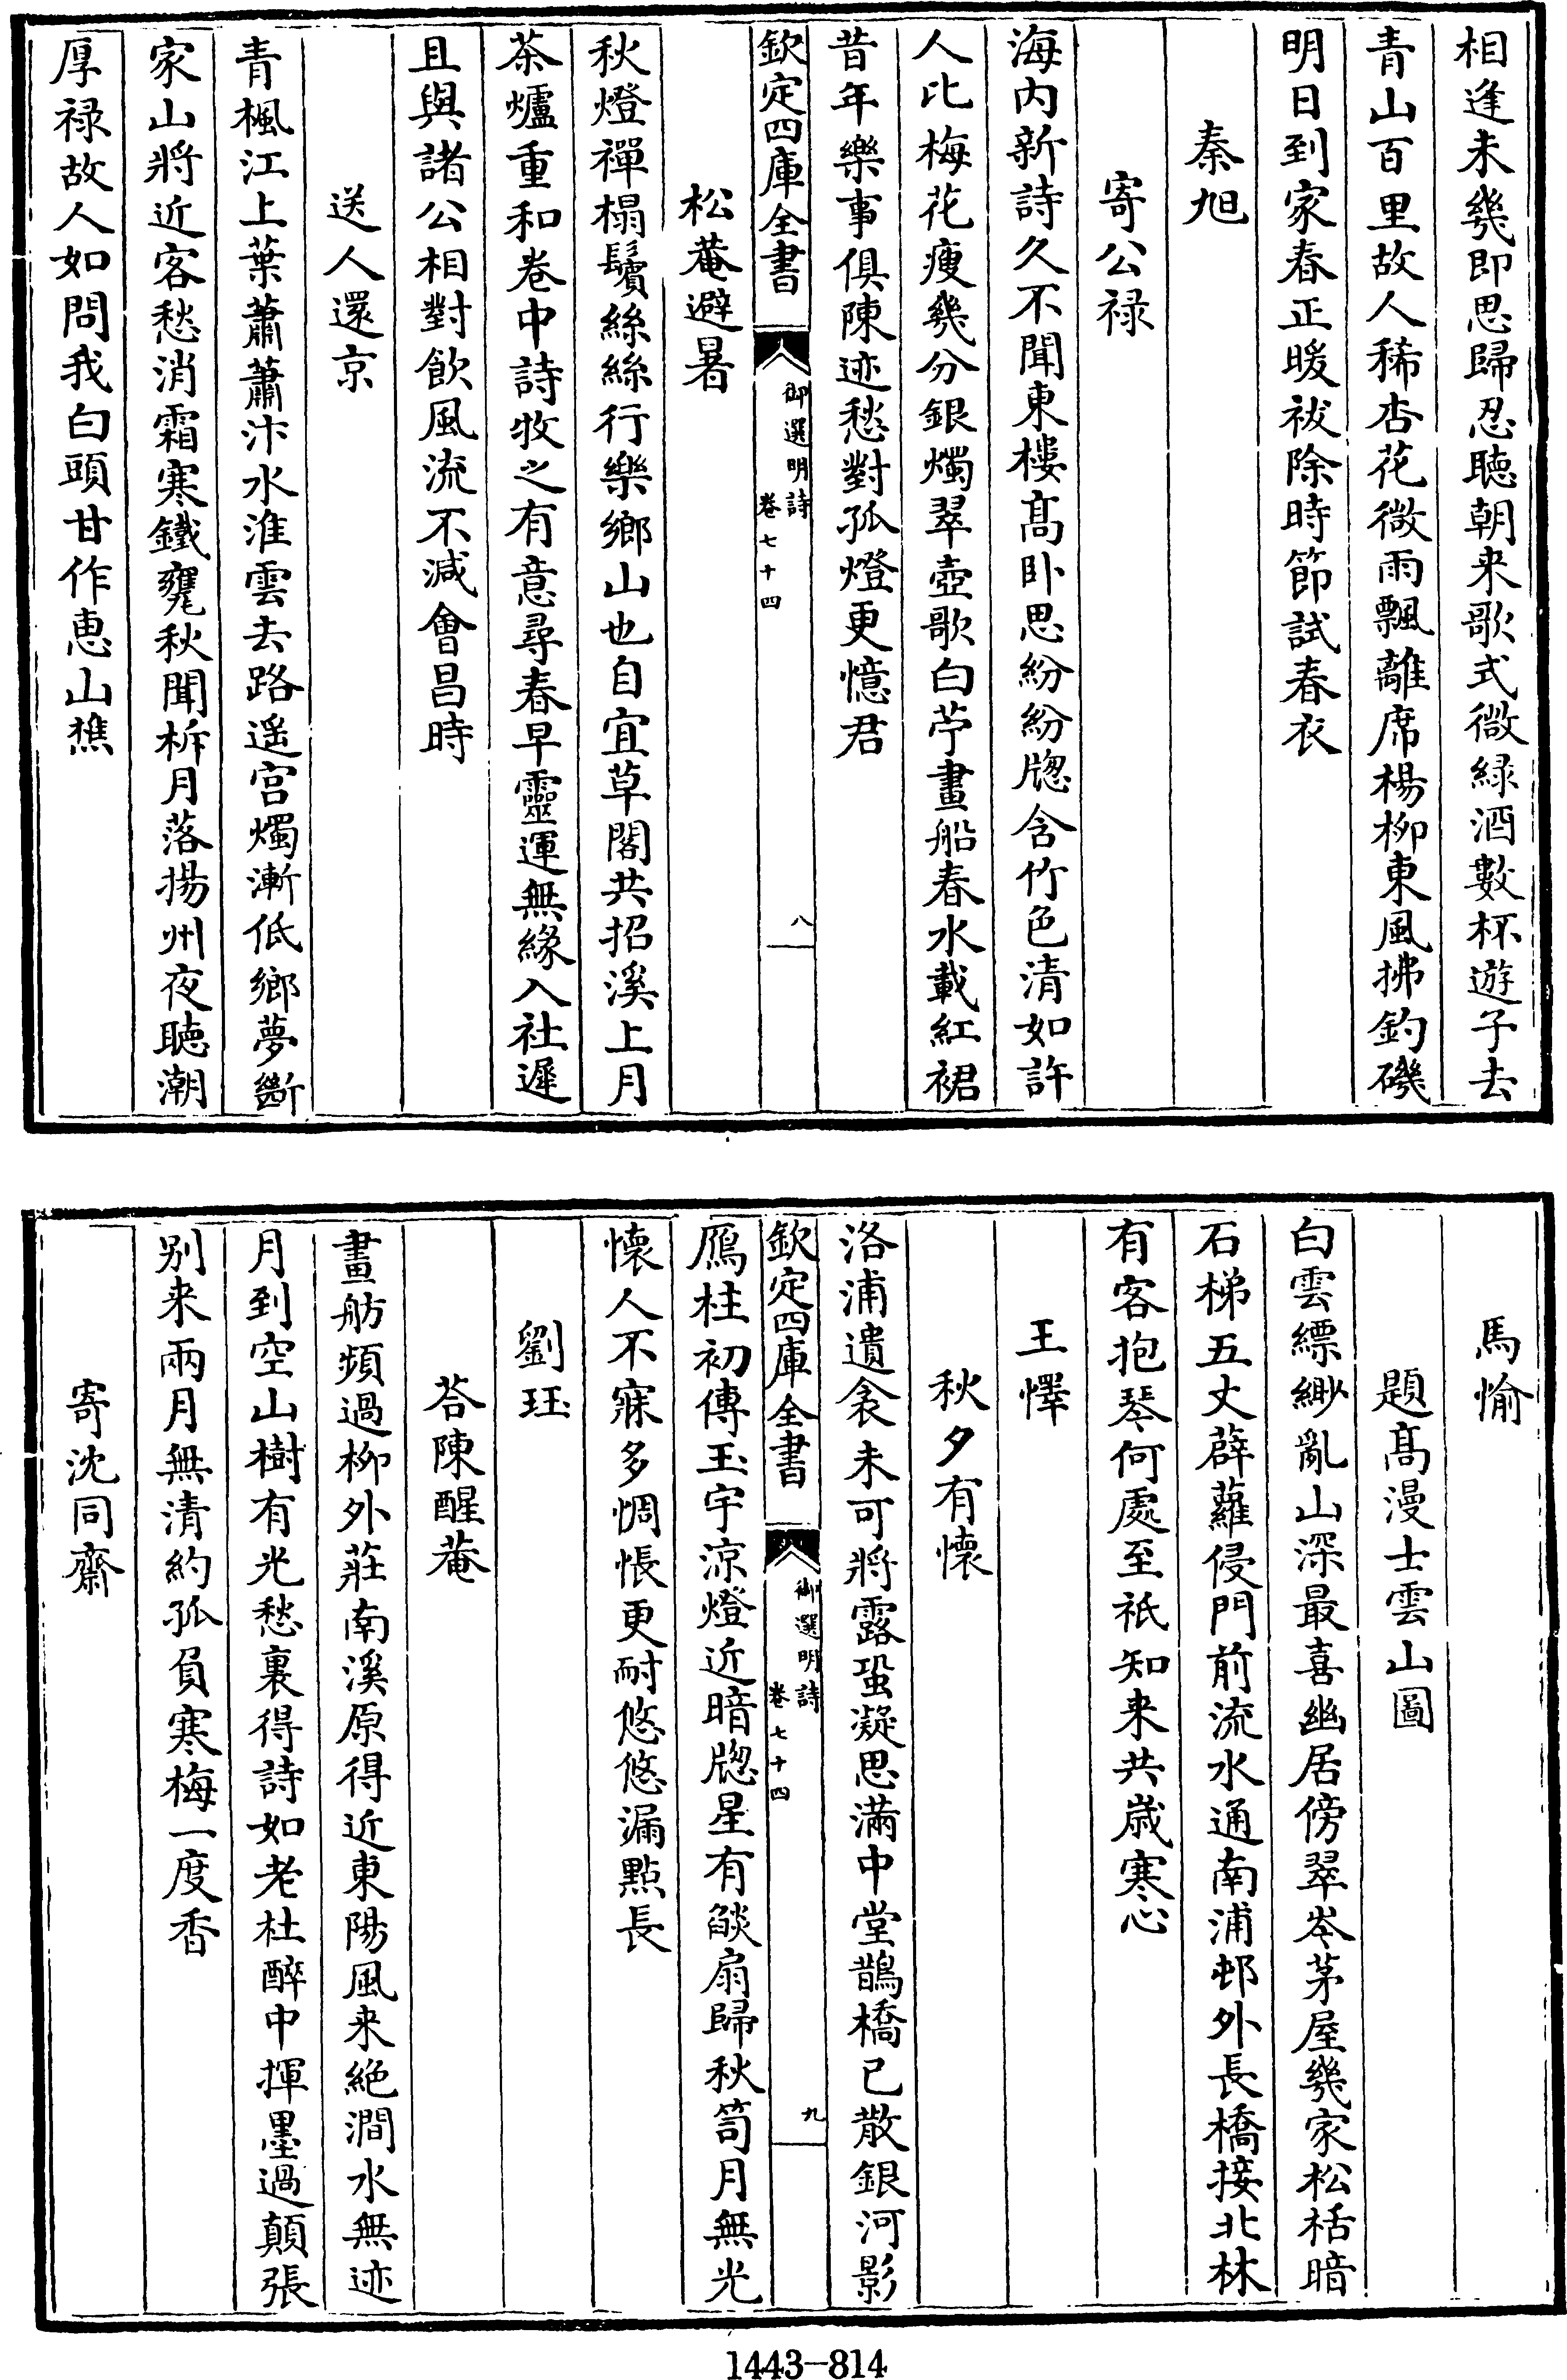 相逢未幾即思歸忍聴朝来歌式微緑酒數杯遊子去
青山百里故人稀杏花微雨飄離席楊柳東風拂釣磯
明日到家春正暖祓除時節試春衣
秦旭
寄公禄
海内新詩久不聞東樓髙卧思紛紛牎含竹色清如許
人比梅花瘦幾分銀燭翠壺歌白苧畫船春水載紅裙
昔年樂事俱陳迹愁對孤燈更憶君
欽定四庫全書
御選明詩
卷七十四
八
松菴避暑
秋燈禪榻鬢絲絲行樂鄉山也自宜草閣共招溪上月
茶爐重和卷中詩牧之有意尋春早靈運無緣入社遲
且與諸公相對飲風流不減會昌時
送人還京
青楓江上葉蕭蕭汴水淮雲去路遥宫燭漸低鄉夢斷
家山將近客愁消霜寒鐵甕秋聞柝月落揚州夜聴潮
厚禄故人如問我白頭甘作惠山樵
馬愉
題髙漫士雲山圖
白雲縹緲亂山深最喜幽居傍翠岑茅屋幾家松栝暗
石梯五丈薜蘿侵門前流水通南浦邨外長橋接北林
有客抱琴何處至祇知来共歳寒心
王懌
秋夕有懷
洛浦遺衾未可將露蛩凝思滿中堂鵲橋已散銀河影
欽定四庫全書
御選明詩
卷七十四
九
鴈柱初傳玉宇涼燈近暗牎星有燄扇歸秋笥月無光
懷人不寐多惆悵更耐悠悠漏點長
劉珏
荅陳醒菴
畫舫頻過柳外莊南溪原得近東陽風来絶澗水無迹
月到空山樹有光愁裏得詩如老杜醉中揮墨過顛張
别来兩月無清約孤負寒梅一度香
寄沈同齋
1443-814